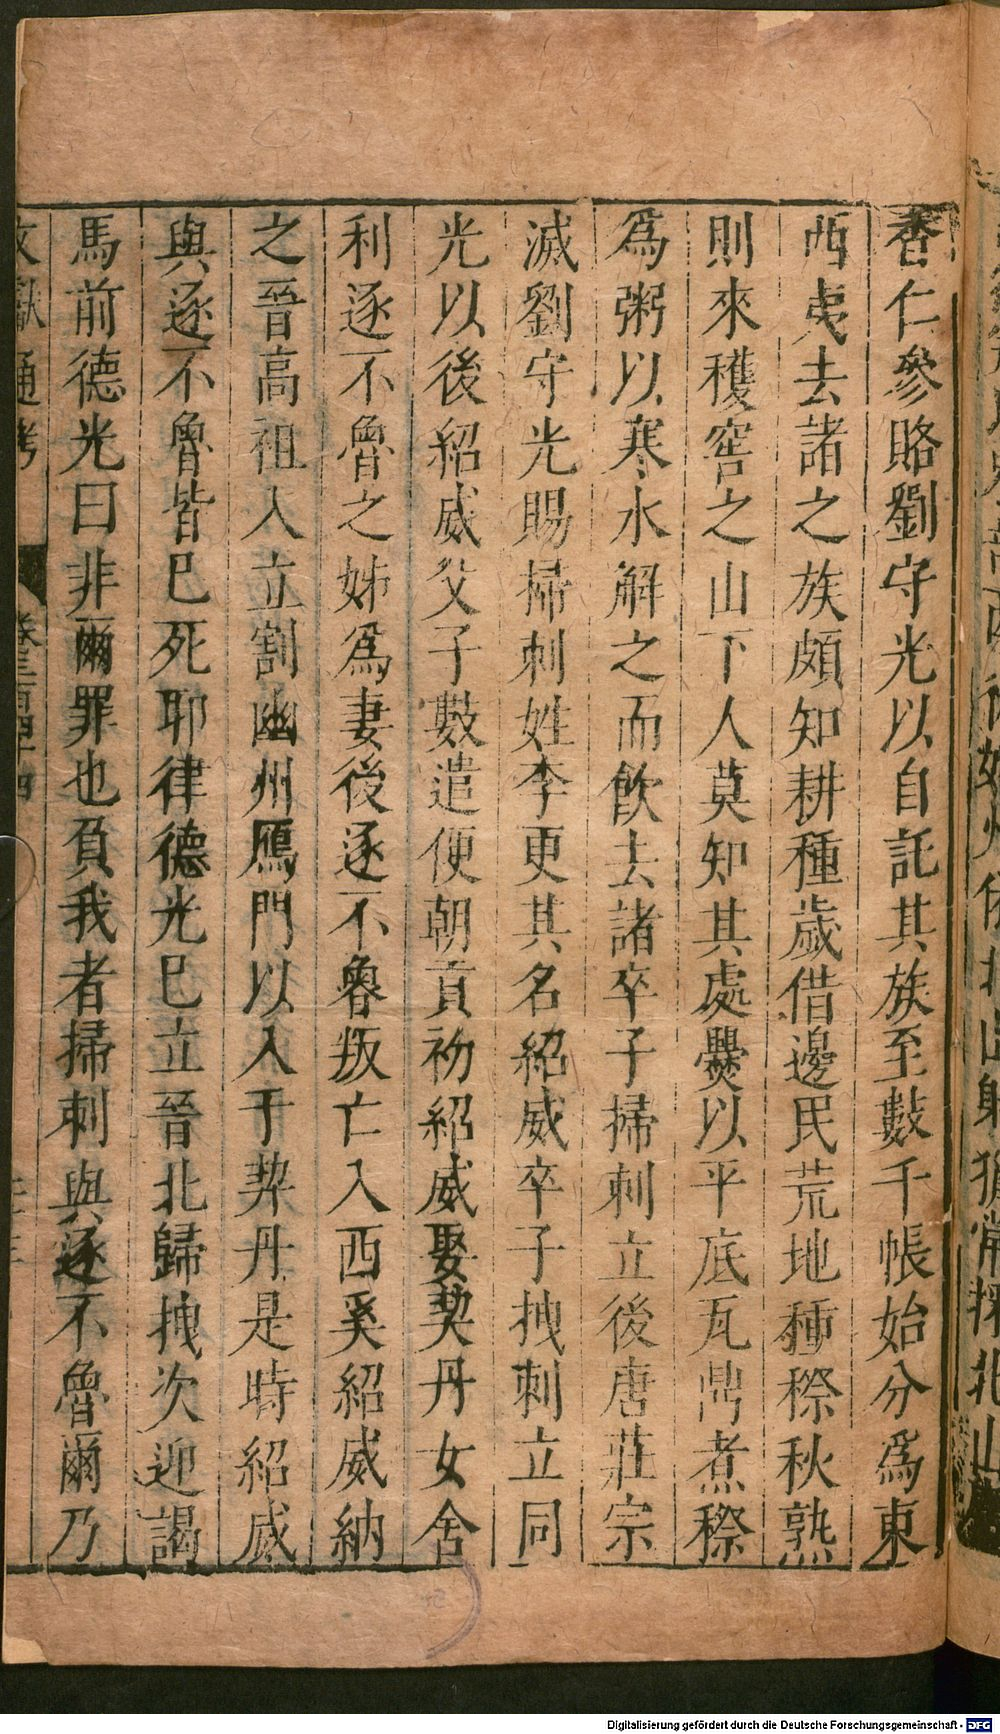 香仁參賂劉守光以自託其族至數千帳始分爲東
西夷去諸之族頗知耕種歲借邊民荒地種穄秋熟
則來穫窖之山下人莫知其處爨以平底瓦鼎煮穄
爲粥以寒水解之而飲去諸卒子掃剌立後唐莊宗
滅劉守光賜掃剌姓李更其名紹威卒子拽剌立同
光以後紹威父子數遣使朝貢初紹威娶契丹女舍
利逐不魯之姊爲妻後逐不魯叛亡入西奚紹威納
之晉高祖入立割幽州鴈門以入于契丹是時紹威
與逐不魯皆已死耶律德光已立晉北歸拽次迎謁
馬前德光曰非爾罪也負我者掃剌與逐不魯爾乃
文獻通考 卷三百四十四
Digitalisierung gefördert durch die Deutsche Forschungsgemeinschaft - DFG